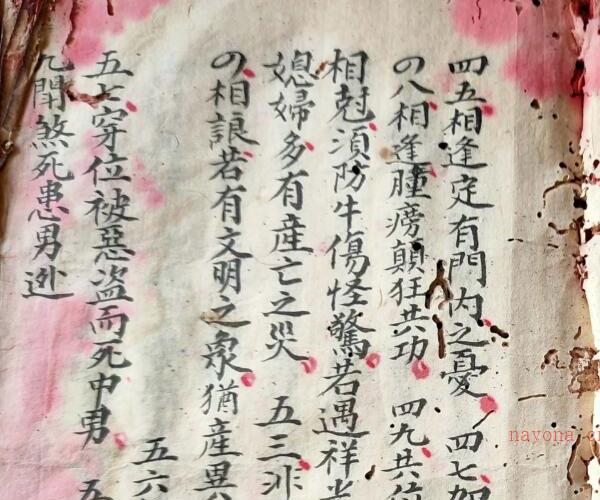 四五相逢定有門内之憂 四七如
の八相逢腫痨顛狂共功 四九共位
相尅須防牛傷怪驚若遇祥光
媳婦多有産亡之災 五三非
の相誏若有文明之象猶産異
五六
五七穿位被惡盗而死中男 五
九門煞死患男逊
nayona.cn